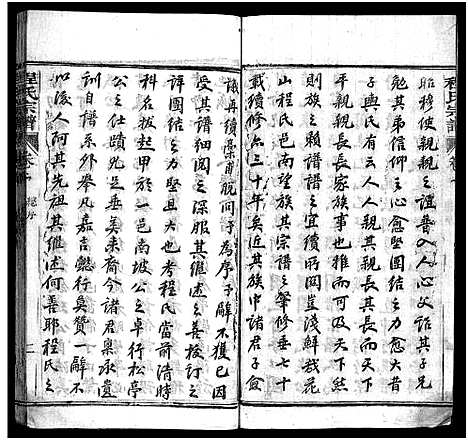 程氏宗譜
昭穆使親親之誼普入人心父詔其子兄
勉其弟信仰之心愈堅團結之力愈大昔
子輿氏有云人人親其親長其長而天下
平親親長長家族事也推而可及天下然
則族之賴以譜者豈鮮淺哉花
山程氏邑之宜續所關豈淺鮮哉花
載續修迄三十年矣近其族中諸君子僉
議再續稾甫脫問予為序予辭不獲已因
受其譜細閱之深服其前人之善接訂之
詳團結之力堅且大也考程氏當前清時
科名拔起甲於一邑南坡公之卓行松亭
公之仕蹟允足垂美來裔今諸君稟承遺
訓自譜系外舉凡嘉言懿行莫贊一辭不
以後人阿其先祖其繼述何善耶程氏之
程氏宗譜
卷首
總序
二